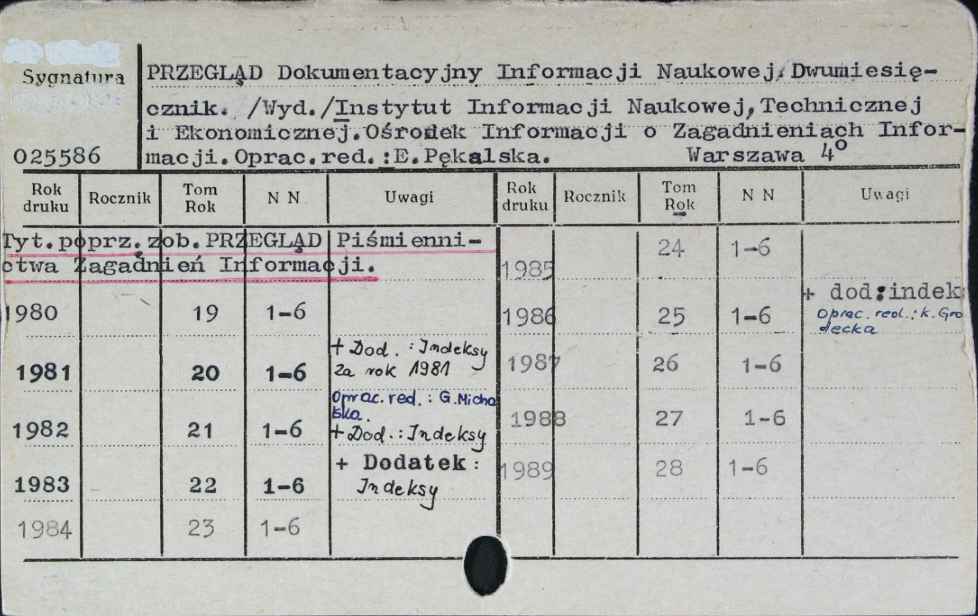 Sygnatura
PRZEGLĄD Dokumentacyjny Informacji Naukowej. Dwumiesię-
cznik. /Wyd./Instytut Informacji Naukowej, Technicznej
i Ekonomicznej. Ośrodek Informacji o Zagadnieniach Infor-
025586 macji. Oprac. red.: E. Pękalska. Warszawa 4°
Rok druku Rocznik Tom Rok N N Uwagi Rok druku Rocznik Tom Rok N N Uwagi
Tyt. poprz. zob. PRZEGLĄD Piśmienni-
ctwa Zagadnień Informacji.
1980 19 1-6
1981 20 1-6 + Dod.: Indeksy
za rok 1981
Oprac. red.: G. Micha
lska.
1982 21 1-6 + Dod.: Indeksy
1983 22 1-6 + Dodatek:
Indeksy
1984 23 1-6
1985 24 1-6
+ dod: indek
1986 25 1-6 Oprac. red.: K. Gro
decka
1987 26 1-6
1988 27 1-6
1989 28 1-6